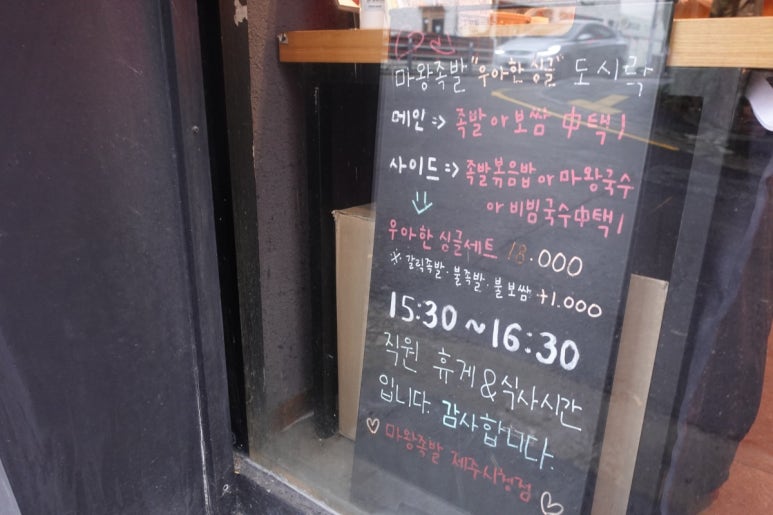 마왕족발 "우아한 싱글" 도시락
메인 => 족발 or 보쌈 中 택 1
사이드 => 족발볶음밥 or 마왕국수
or 비빔국수 中 택 1
우아한 싱글세트 18.000
※ 갈릭족발·불족발·불보쌈 +1.000
15:30 ~ 16:30
직원 휴게 & 식사시간
입니다. 감사합니다.
마왕족발 제주시청점